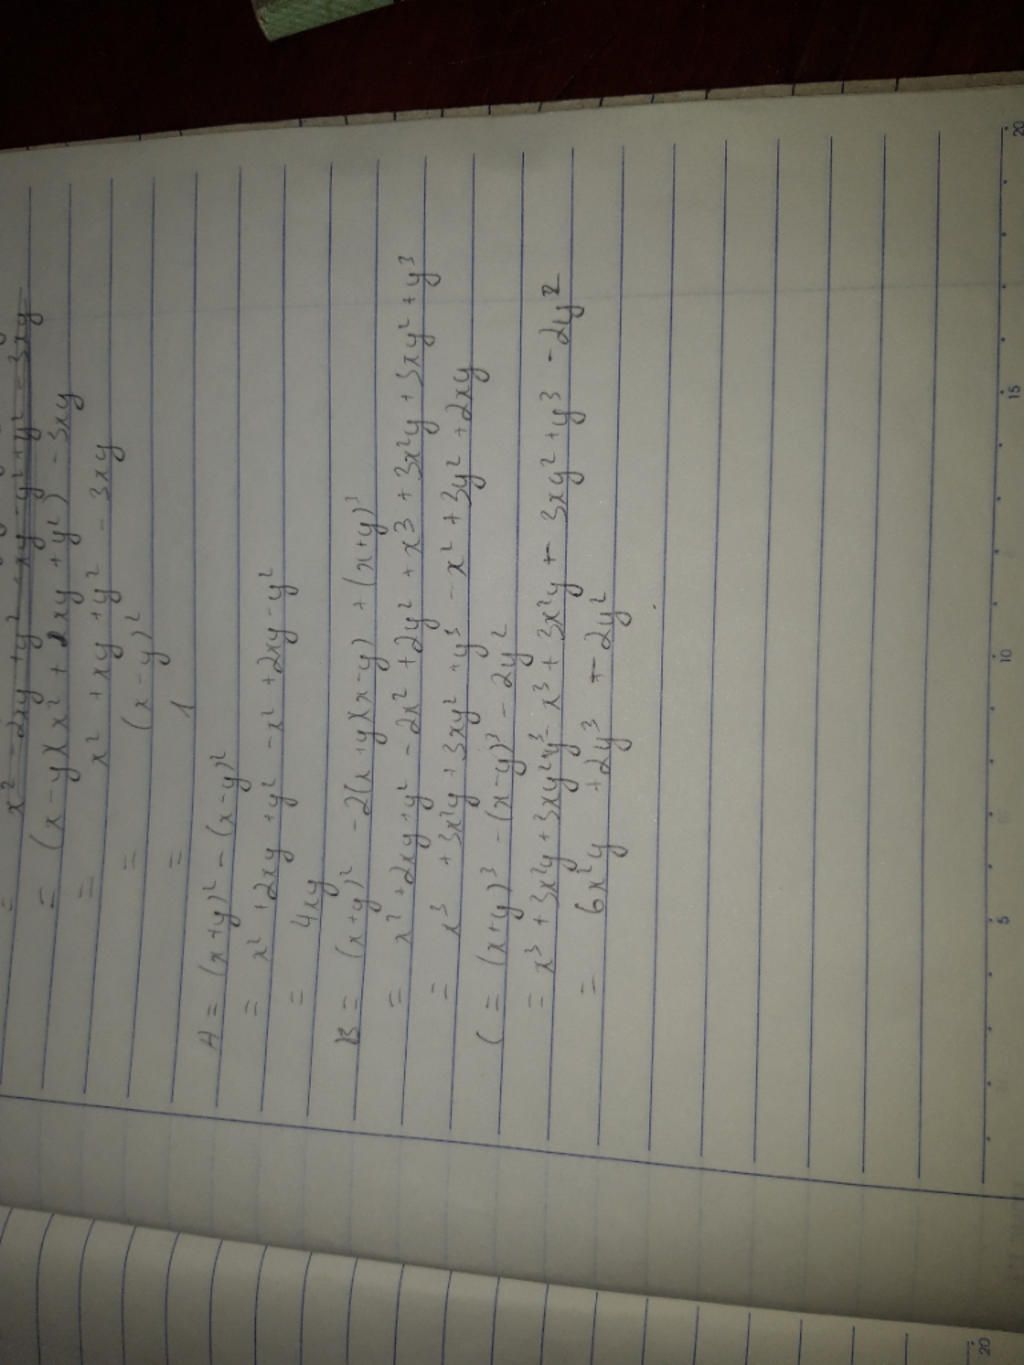 = x² - 2xy + y² + xy - y² + y² - 3xy
= (x - y)(x² + xy + y²) - 3xy
= x² + xy + y² - 3xy
= (x - y)²
= 1
A = (x+y)² - (x-y)²
= x² + 2xy + y² - x² + 2xy - y²
= 4xy
B = (x+y)² - 2(x+y)(x-y) + (x+y)³
= x² + 2xy + y² - 2x² + 2y² + x³ + 3x²y + 3xy² + y³
= x³ + 3x²y + 3xy² + y³ - x² + 3y² + 2xy
C = (x+y)³ - (x-y)³ - 2y²
= x³ + 3x²y + 3xy² + y³ - x³ + 3x²y - 3xy² + y³ - 2y²
= 6x²y + 2y³ - 2y²
5
10
15
20
20